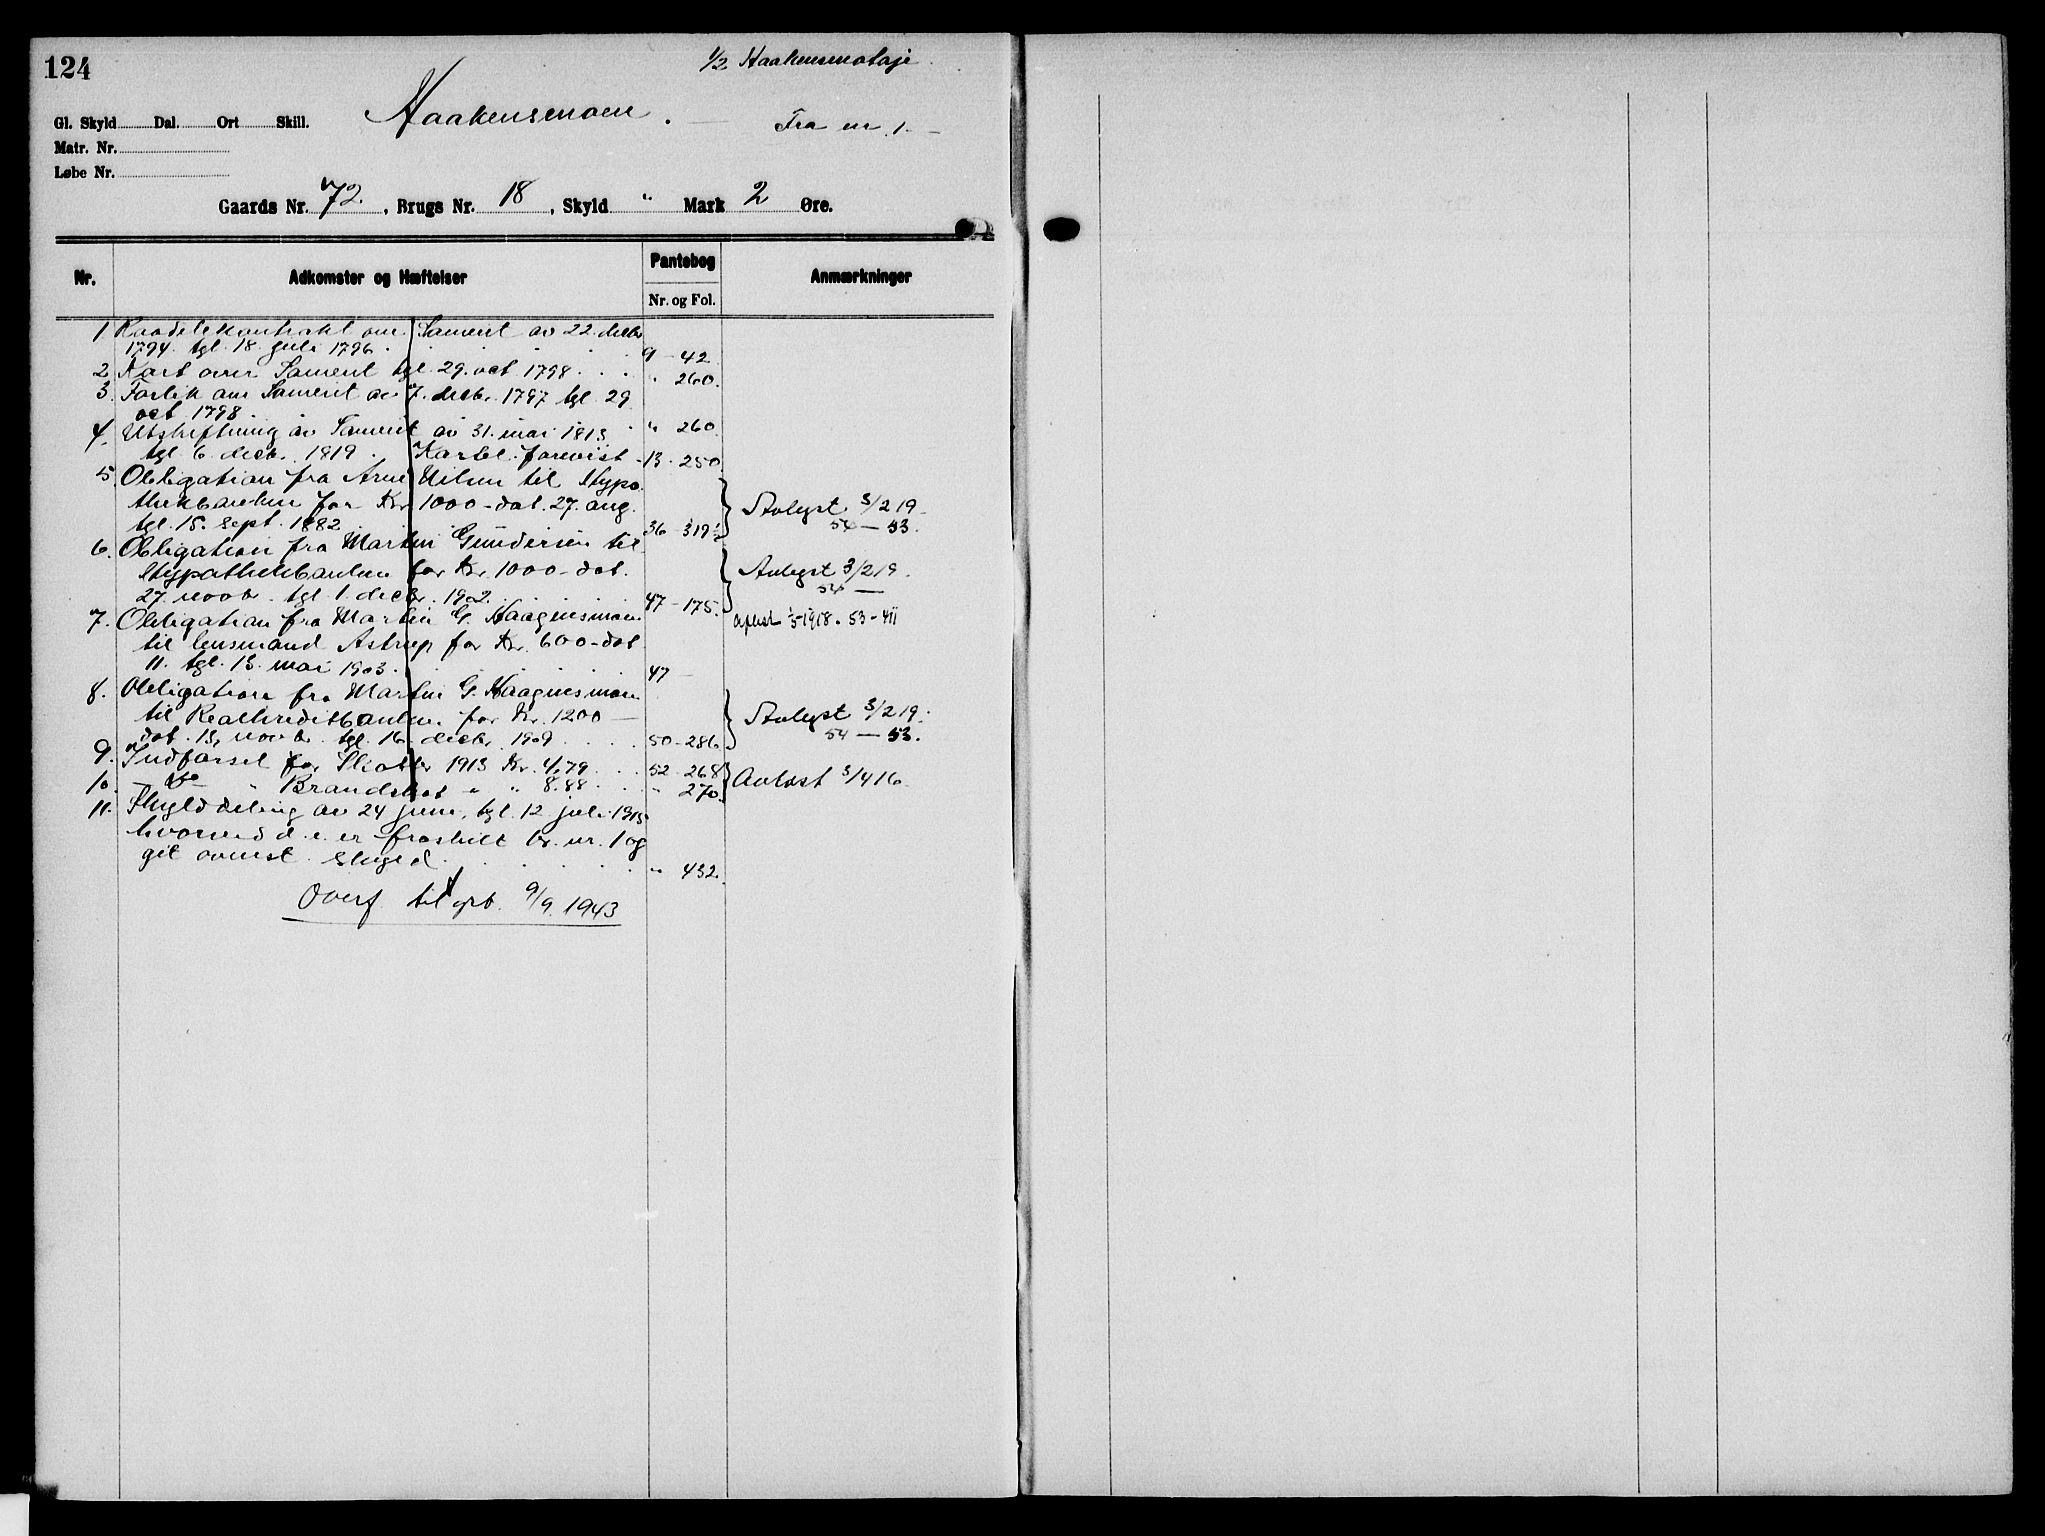 124
1/2 Haakensmotaje
Haakensmoen.
Fra nr. 1.
Gl. Skyld Dal. Ort Skill.
Matr. Nr.
Løbe Nr.
Gaards Nr. 72. , Brugs Nr. 18 , Skyld " Mark 2 Øre.
Nr. Adkomster og Hæftelser Pantebog Anmærkninger
Nr. og Fol.
1 Kontrakt om Sameiet av 22. decbr
1794. tgl. 18. juli 1796. 9 - 42
2 Kart over Sameiet tgl. 29. oct 1798 " 260.
3. Forlik om Sameiet av 7. decbr. 1797 tgl 29
oct 1798 " 260
4. Utskiftning av Sameiet av 31. mai 1813
tgl 6. decbr. 1819. Kartet forevist 13 - 250
5. Obligation fra Arne Nilsen til Hypo-
thekbanken for Kr. 1000 - dat. 27. aug.
tgl. 15. sept. 1882 36 - 319 Avlyst 3/2 19 -
54 — 53.
6. Obligation fra Martin Gundersen til
Hypothekbanken for Kr. 1000 - dat.
27. novbr. tgl. 1. decbr. 1902. 47 - 175. Avlyst 3/2 19.
54 —
7. Obligation fra Martin G. Haagnesmoen
til lensmand Astrup for Kr. 600 - dat
11. tgl. 13. mai 1903. 47 - 1918. 53 - 411
8. Obligation fra Martin G. Haagnesmoen
til Realkreditbanken for Kr. 1200 —
dat. 13. novbr. tgl. 16. decbr. 1909 50 - 286 Avlyst 3/2 19.
54 — 53.
9. Indførsel for Skatter 1913 Kr. 4,79 52 - 268
10. do " Brandskat " " 8.88 " 270. Avløst 3/4 16
11. Skylddeling av 24 juni, tgl. 12 juli 1915
hvorved d. e. er fraskilt br. nr. 1 og
git ovenst. skyld. " 432.
Overf. til grb. 9/9. 1943